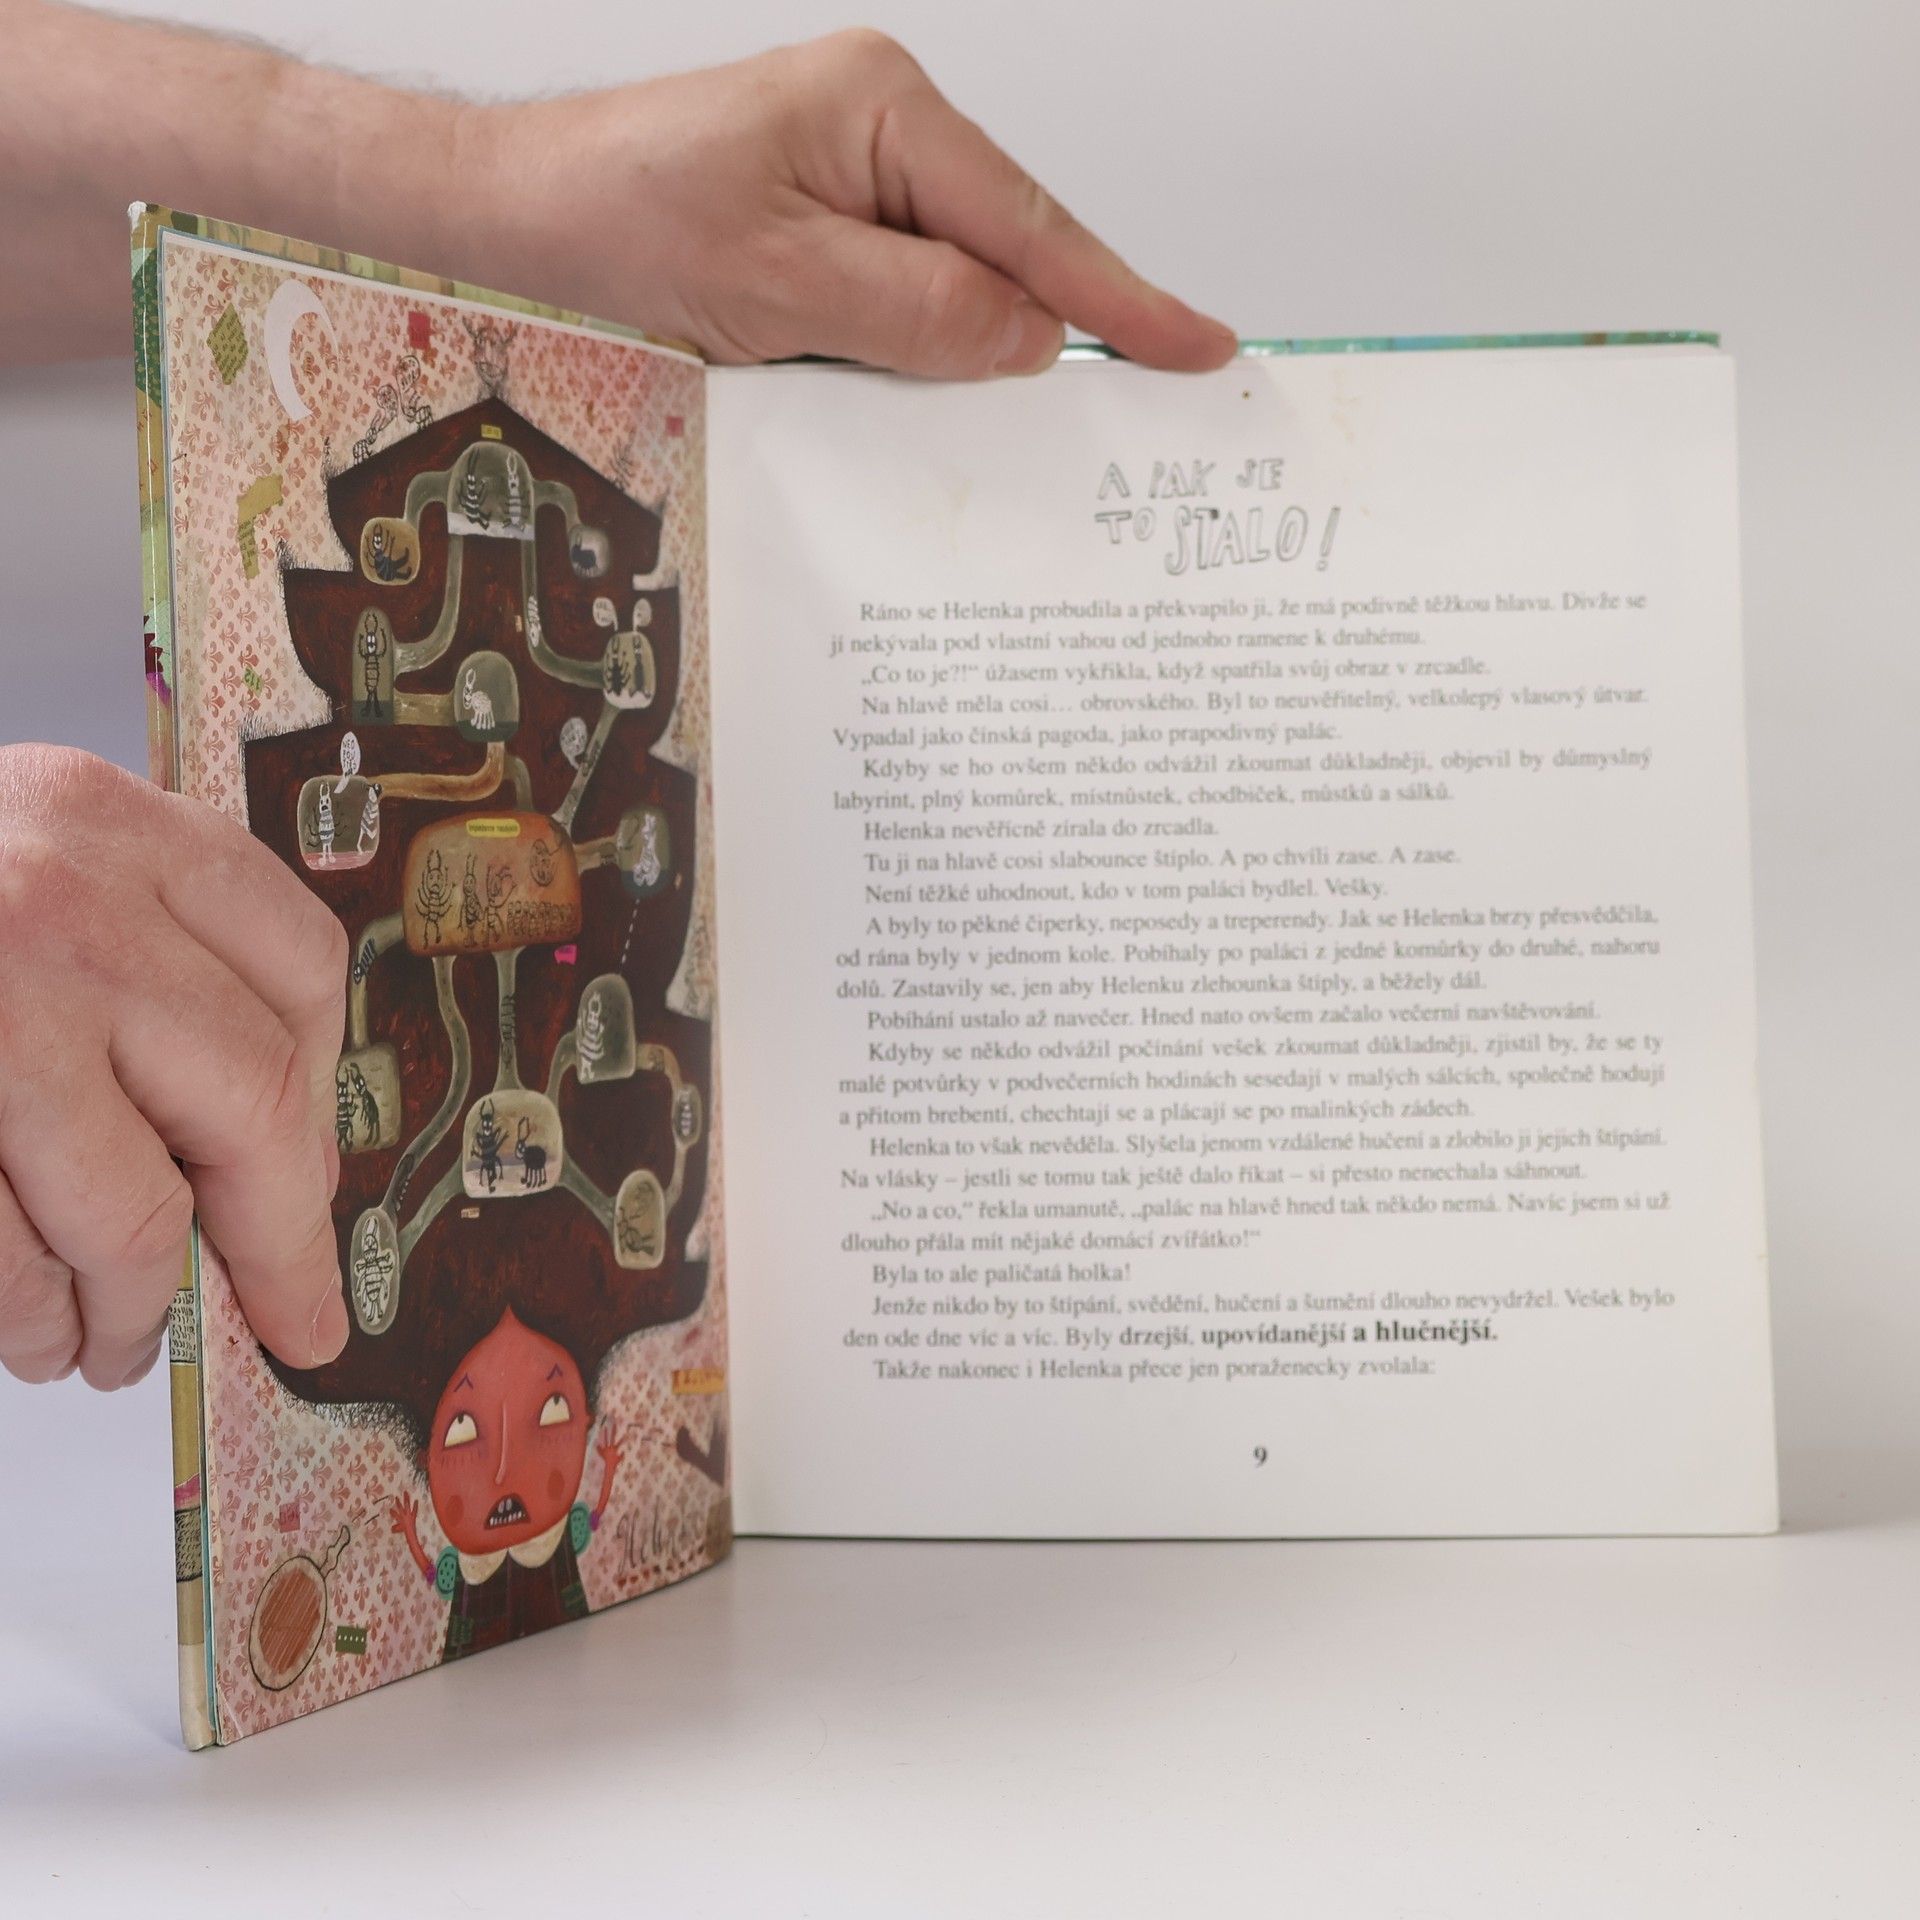 A PAK SE
TO STALO!
Ráno se Helenka probudila a překvapilo ji, že má podivně těžkou hlavu. Divže se
jí nekývala pod vlastní vahou od jednoho ramene k druhému.
„Co to je?!“ úžasem vykřikla, když spatřila svůj obraz v zrcadle.
Na hlavě měla cosi… obrovského. Byl to neuvěřitelný, velkolepý vlasový útvar.
Vypadal jako čínská pagoda, jako prapodivný palác.
Kdyby se ho ovšem někdo odvážil zkoumat důkladněji, objevil by důmyslný
labyrint, plný komůrek, místnůstek, chodbiček, můstků a sálků.
Helenka nevěřícně zírala do zrcadla.
Tu ji na hlavě cosi slabounce štíplo. A po chvíli zase. A zase.
Není těžké uhodnout, kdo v tom paláci bydlel. Vešky.
A byly to pěkné čiperky, neposedy a treperendy. Jak se Helenka brzy přesvědčila,
od rána byly v jednom kole. Pobíhaly po paláci z jedné komůrky do druhé, nahoru
dolů. Zastavily se, jen aby Helenku zlehounka štíply, a běžely dál.
Pobíhání ustalo až navečer. Hned nato ovšem začalo večerní navštěvování.
Kdyby se někdo odvážil počínání vešek zkoumat důkladněji, zjistil by, že se ty
malé potvůrky v podvečerních hodinách sesedají v malých sálcích, společně hodují
a přitom brebentí, chechtají se a plácají se po malinkých zádech.
Helenka to však nevěděla. Slyšela jenom vzdálené hučení a zlobilo ji jejich štípání.
Na vlásky – jestli se tomu tak ještě dalo říkat – si přesto nenechala sáhnout.
„No a co,“ řekla umanutě, „palác na hlavě hned tak někdo nemá. Navíc jsem si už
dlouho přála mít nějaké domácí zvířátko!“
Byla to ale paličatá holka!
Jenže nikdo by to štípání, svědění, hučení a šumění dlouho nevydržel. Vešek bylo
den ode dne víc a víc. Byly drzejší, upovídanější a hlučnější.
Takže nakonec i Helenka přece jen poraženecky zvolala:
9
112